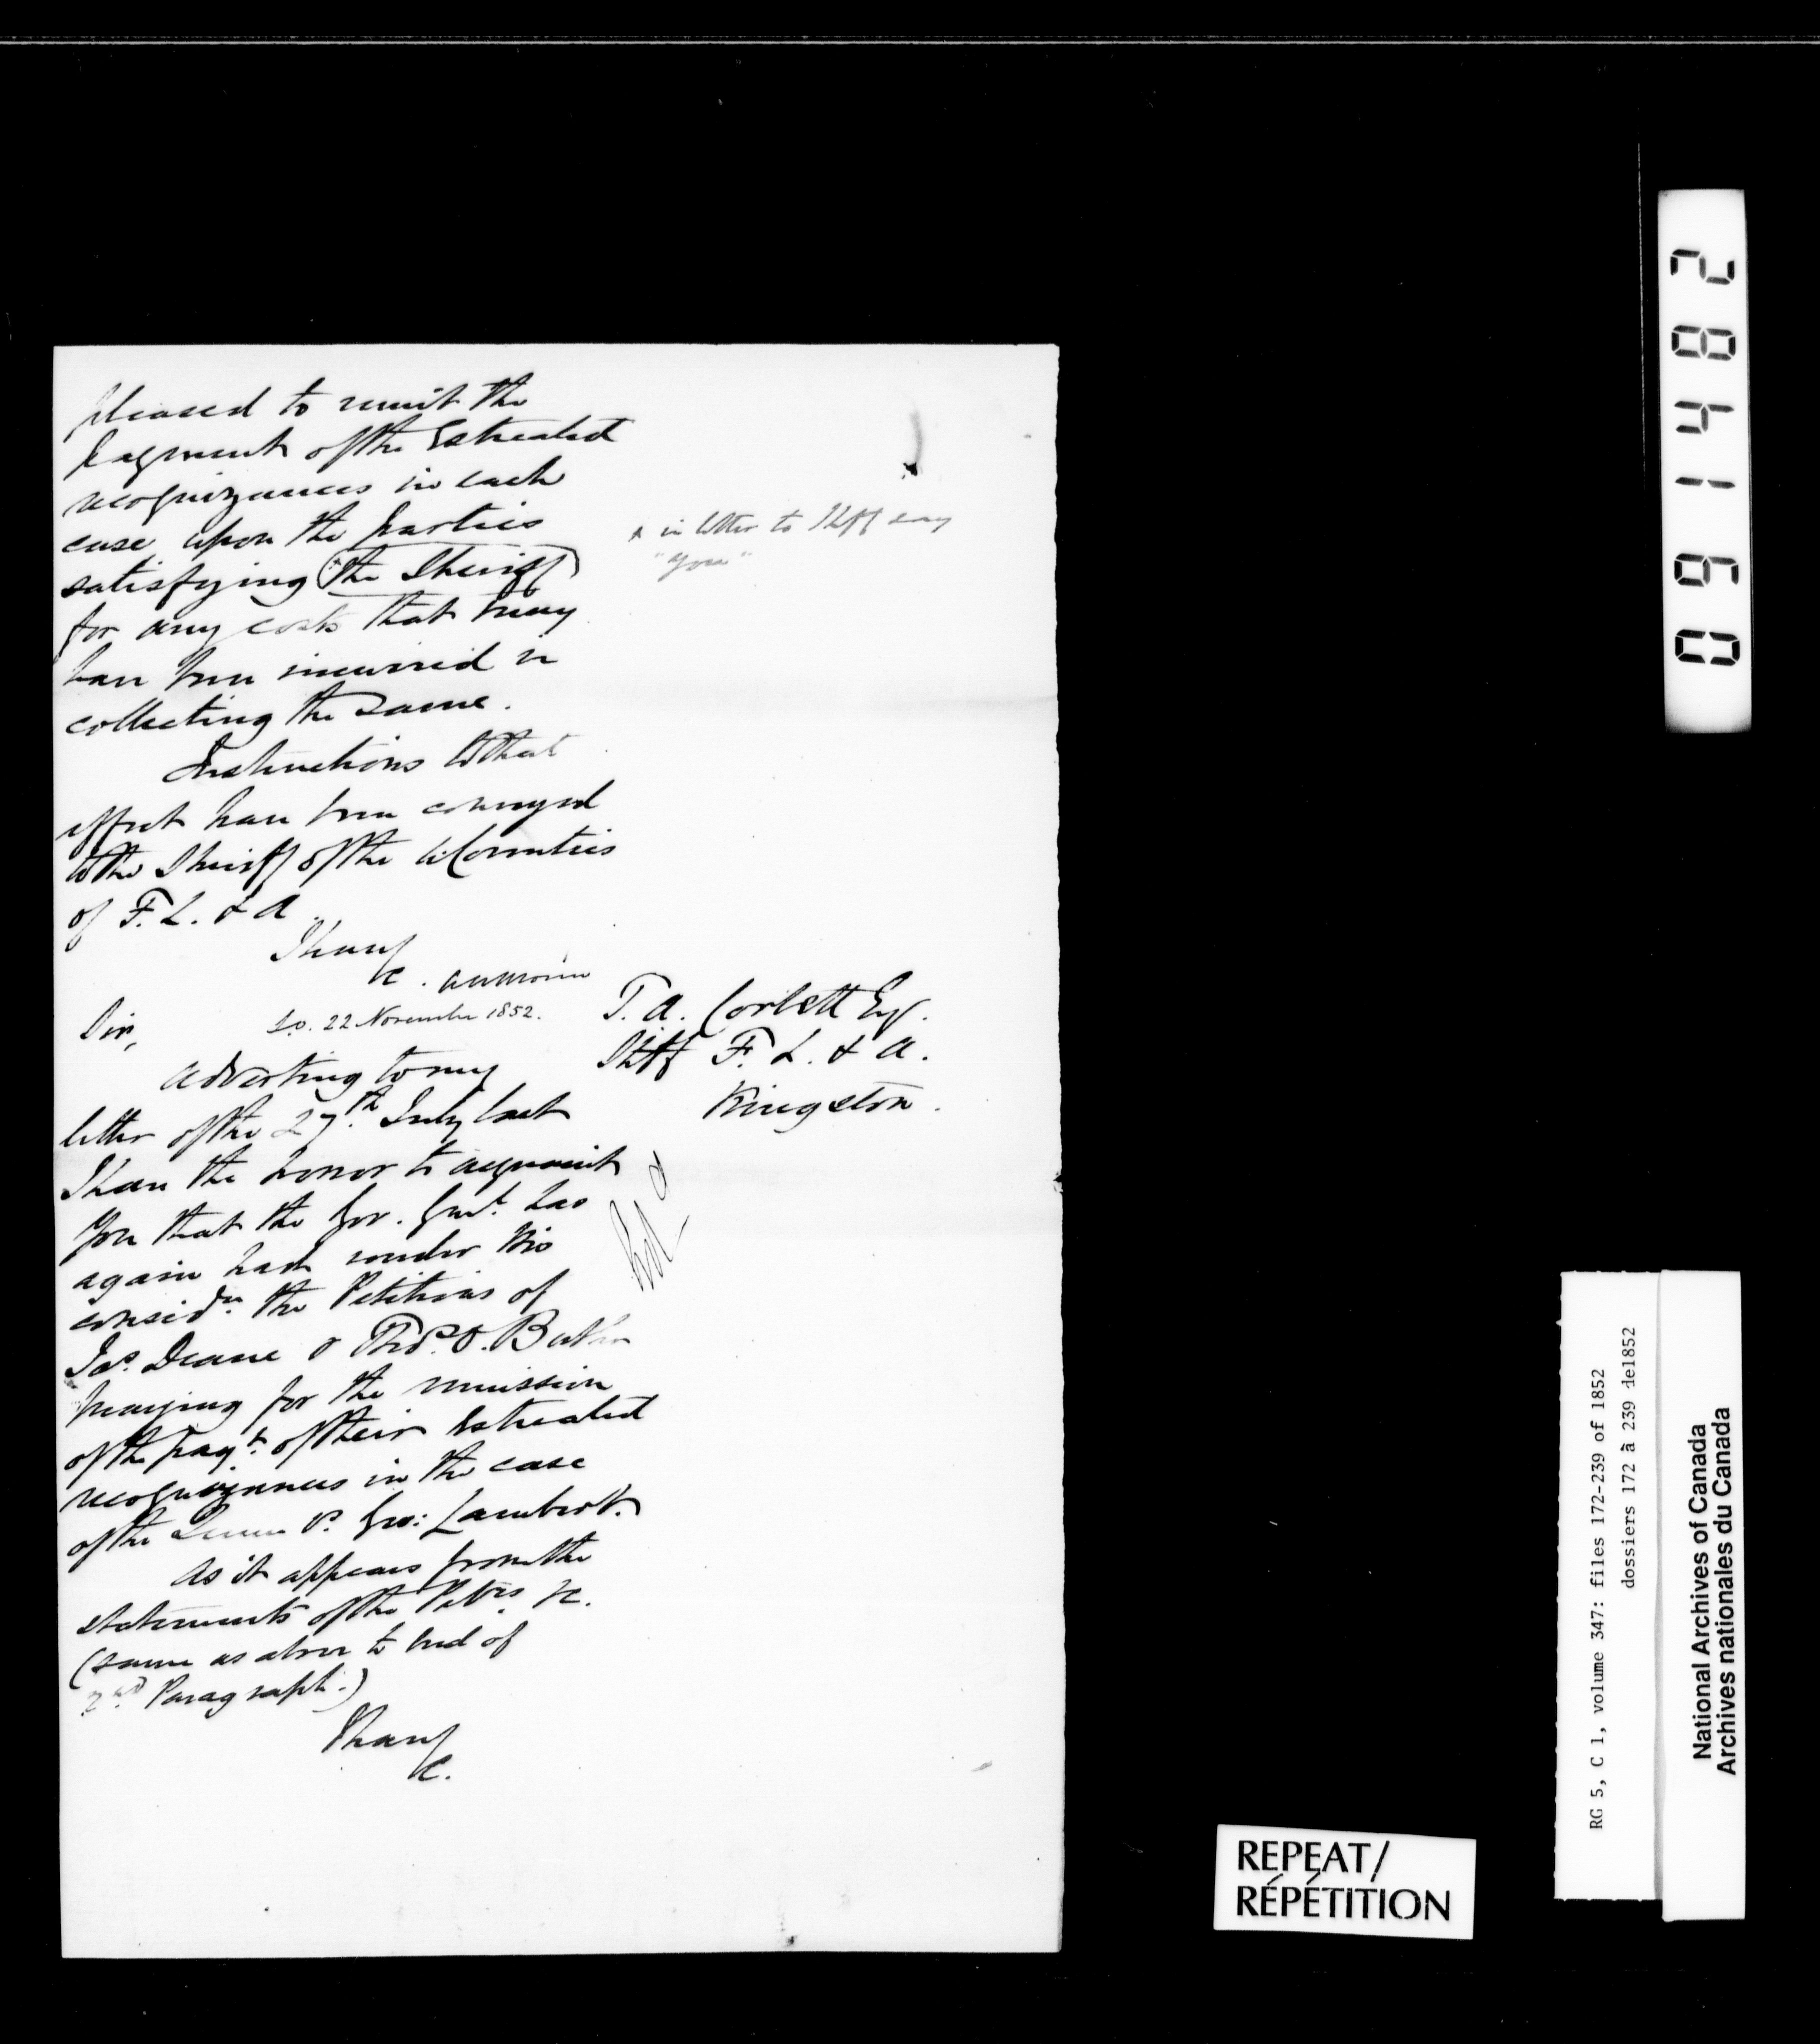 pleased to remit the
payment of the Estreated
recognizances in each
case upon the parties
satisfying (* the Sheriff)
for any costs that may
have been incurred in
collecting the same.
* in letter to Shff say
"you"
Instructions to that
effect have been conveyed
to the Sheriff of the U. Counties
of F. L. & A.
I have
&c. A N Morin
S.O. 22 November 1852.
T. A. Corbett Esq.
Shff F. L. & A.
Kingston.
Sir,
Adverting to my
letter of the 27th. July last
I have the honor to acquaint
you that the Gov. Genl. has
again had under his
considn. the Petitions of
Jas. Deane & Thos. O. Butler
praying for the remission
of the payt. of their Estreated
recognizances in the case
of the Queen vs. Geo: Lambert.
As it appears from the
statements of the Petrs. &c.
(same as above to end of
2nd Paragraph.)
I have
&c.
REPEAT/
RÉPÉTITION
RG 5, C 1, volume 347: files 172-239 of 1852
dossiers 172 à 239 de1852
National Archives of Canada
Archives nationales du Canada
061482